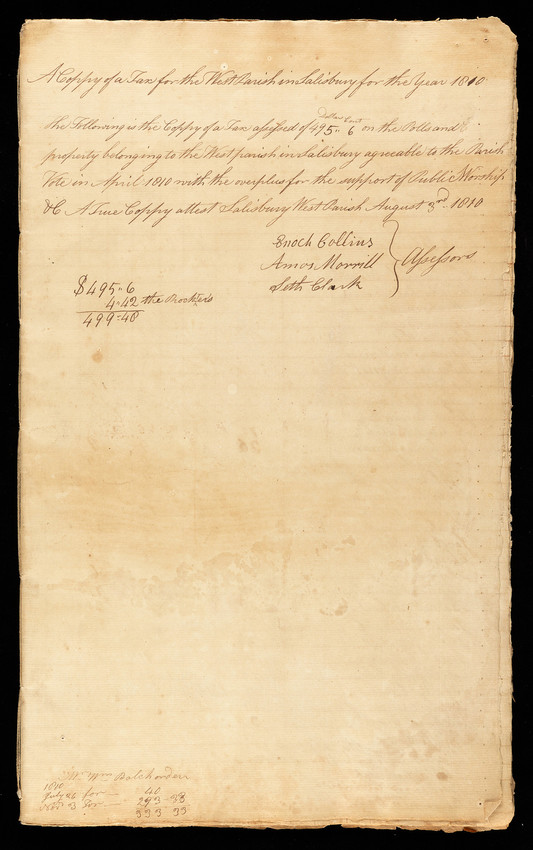 A Coppy of a Tax for the West Parish in Salisbury for the Year 1810
Dollars Cent
the Following is the Coppy of a Tax assessed of 495" 6 on the Polls and
property belonging to the West parish in Salisbury agreable to the Parish
Vote in April 1810 with the overplus for the support of Public Worship
&C A True Coppy attest Salisbury West Parish August 3rd 1810
Enoch Collins
Amos Morrill
Seth Clark
Assessors
$495-6
4-42 the
499-48
Mr Wm order
1810
July 26 for — 40
3 for — 293-33
333 33